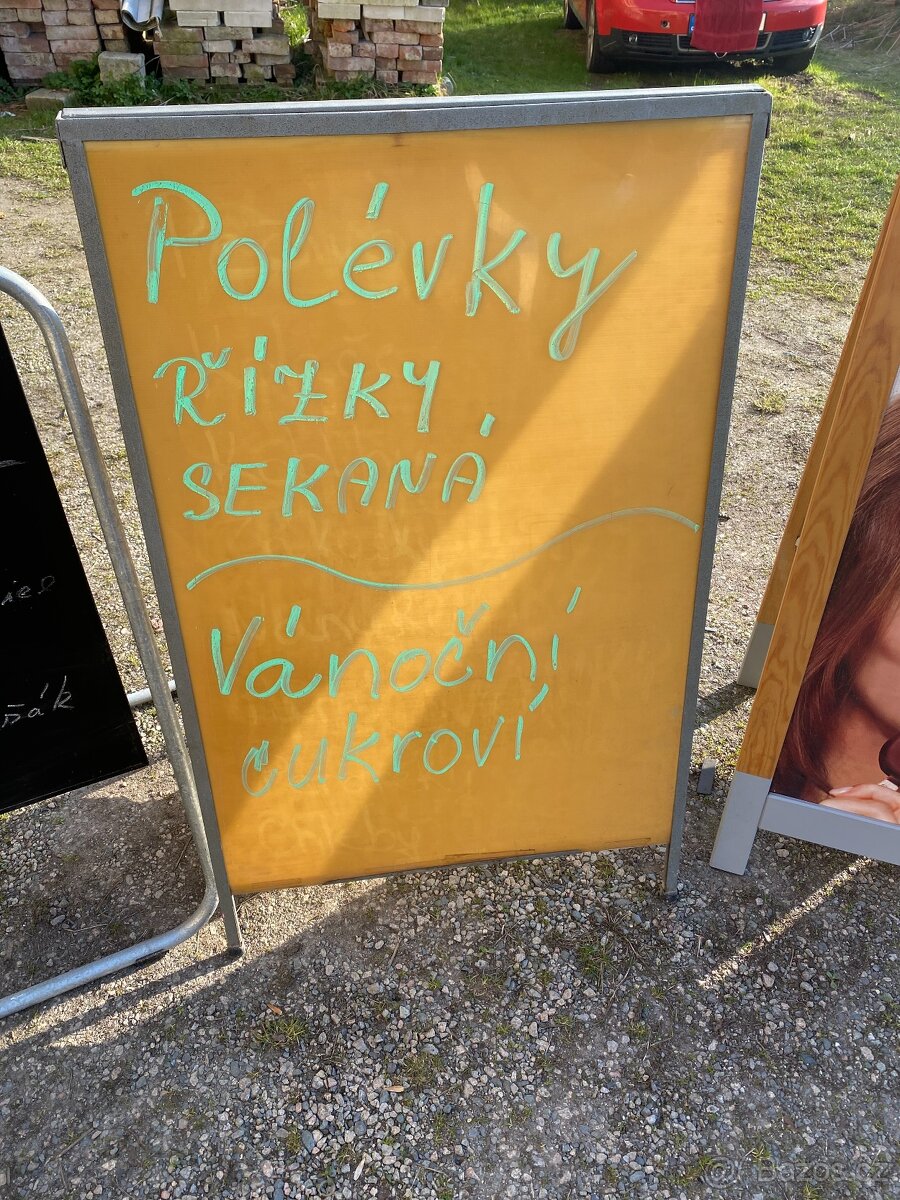 Polévky
ŘÍZKY
SEKANÁ
Vánoční
cukroví
Bazos.cz